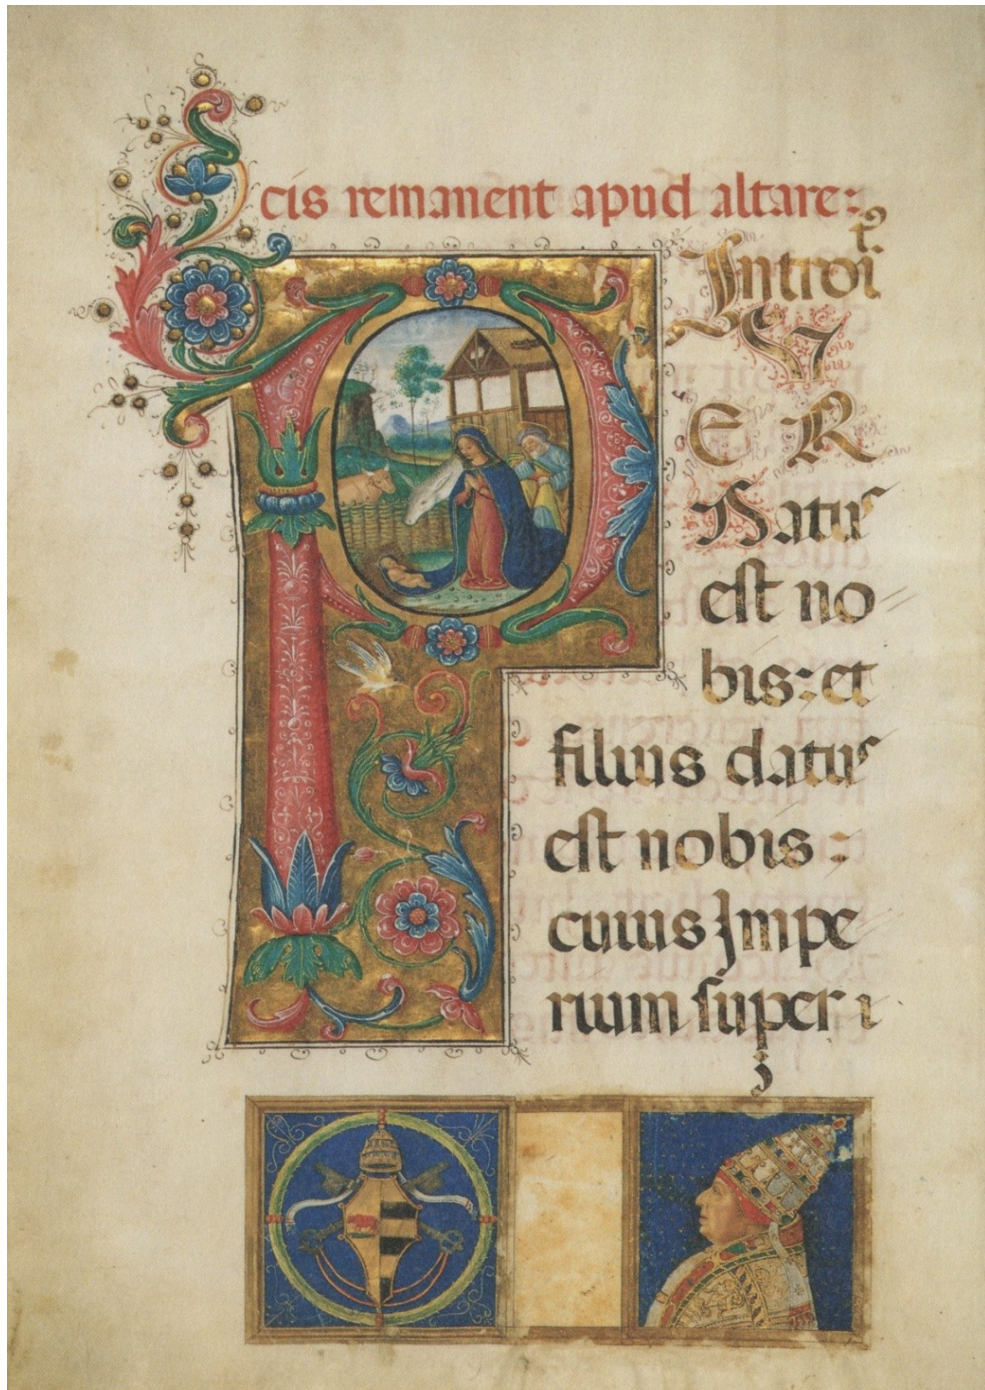 cis remanent apud altare:
Introit.
P V
E R
Natus
est no
bis: et
filius datus
est nobis:
cuius Impe
rium super i